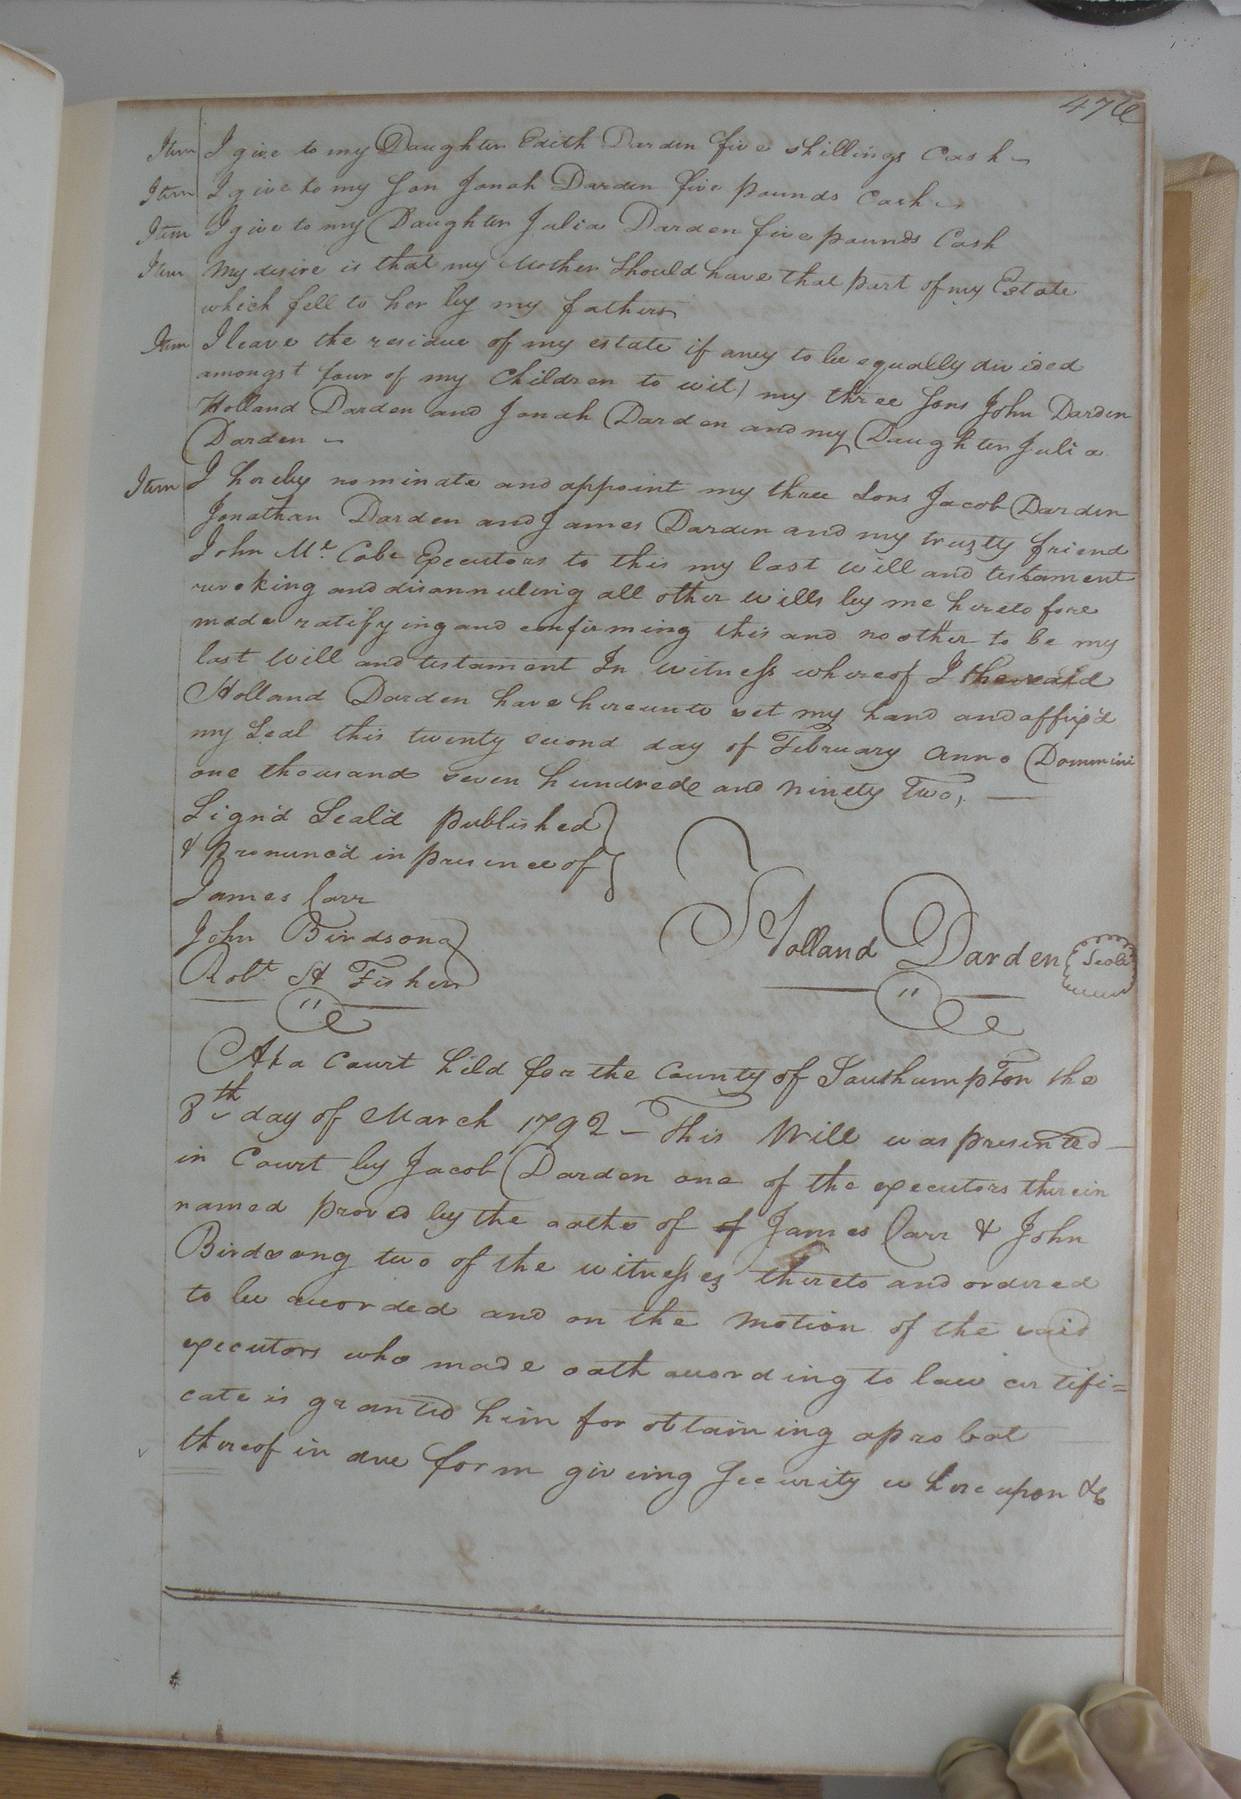 476
Item I give to my Daughter Edith Darden five shillings Cash
Item I give to my Son Jonah Darden five pounds Cash
Item I give to my Daughter Julia Darden five pounds Cash
Item My desire is that my Mother Should have that part of my Estate
which fell to her by my fathers
Item I leave the residue of my estate if any to be equally divided
amongst four of my Children to wit) my three Sons John Darden
Holland Darden and Jonah Darden and my Daughter Julia
Darden
Item I hereby nominate and appoint my three Sons Jacob Darden
Jonathan Darden and James Darden and my trusty friend
John Mc. Cabe Executors to this my last Will and testament
revoking and disannuling all other wills by me hereto fore
made ratifying and confirming this and no other to be my
last Will and testament In witness whereof I the said
Holland Darden have hereunto set my hand and affix'd
my Seal this twenty second day of February Anno Dommini
one thousand seven hundred and Ninety Two,
Sign'd Seal'd published
& pronunc'd in presence of
James Carr
John Birdsong
Robt. H Fisher
Holland Darden Seal
At a Court held for the County of Southampton the
8th day of March 1792 - This Will was presented
in Court by Jacob Darden one of the executors therein
named proved by the oaths of of James Carr & John
Birdsong two of the witnesses thereto and ordered
to be recorded and on the Motion of the said
executors who made oath according to law certifi=
cate is granted him for obtaining a probat
thereof in due form giveing Security whereupon &c